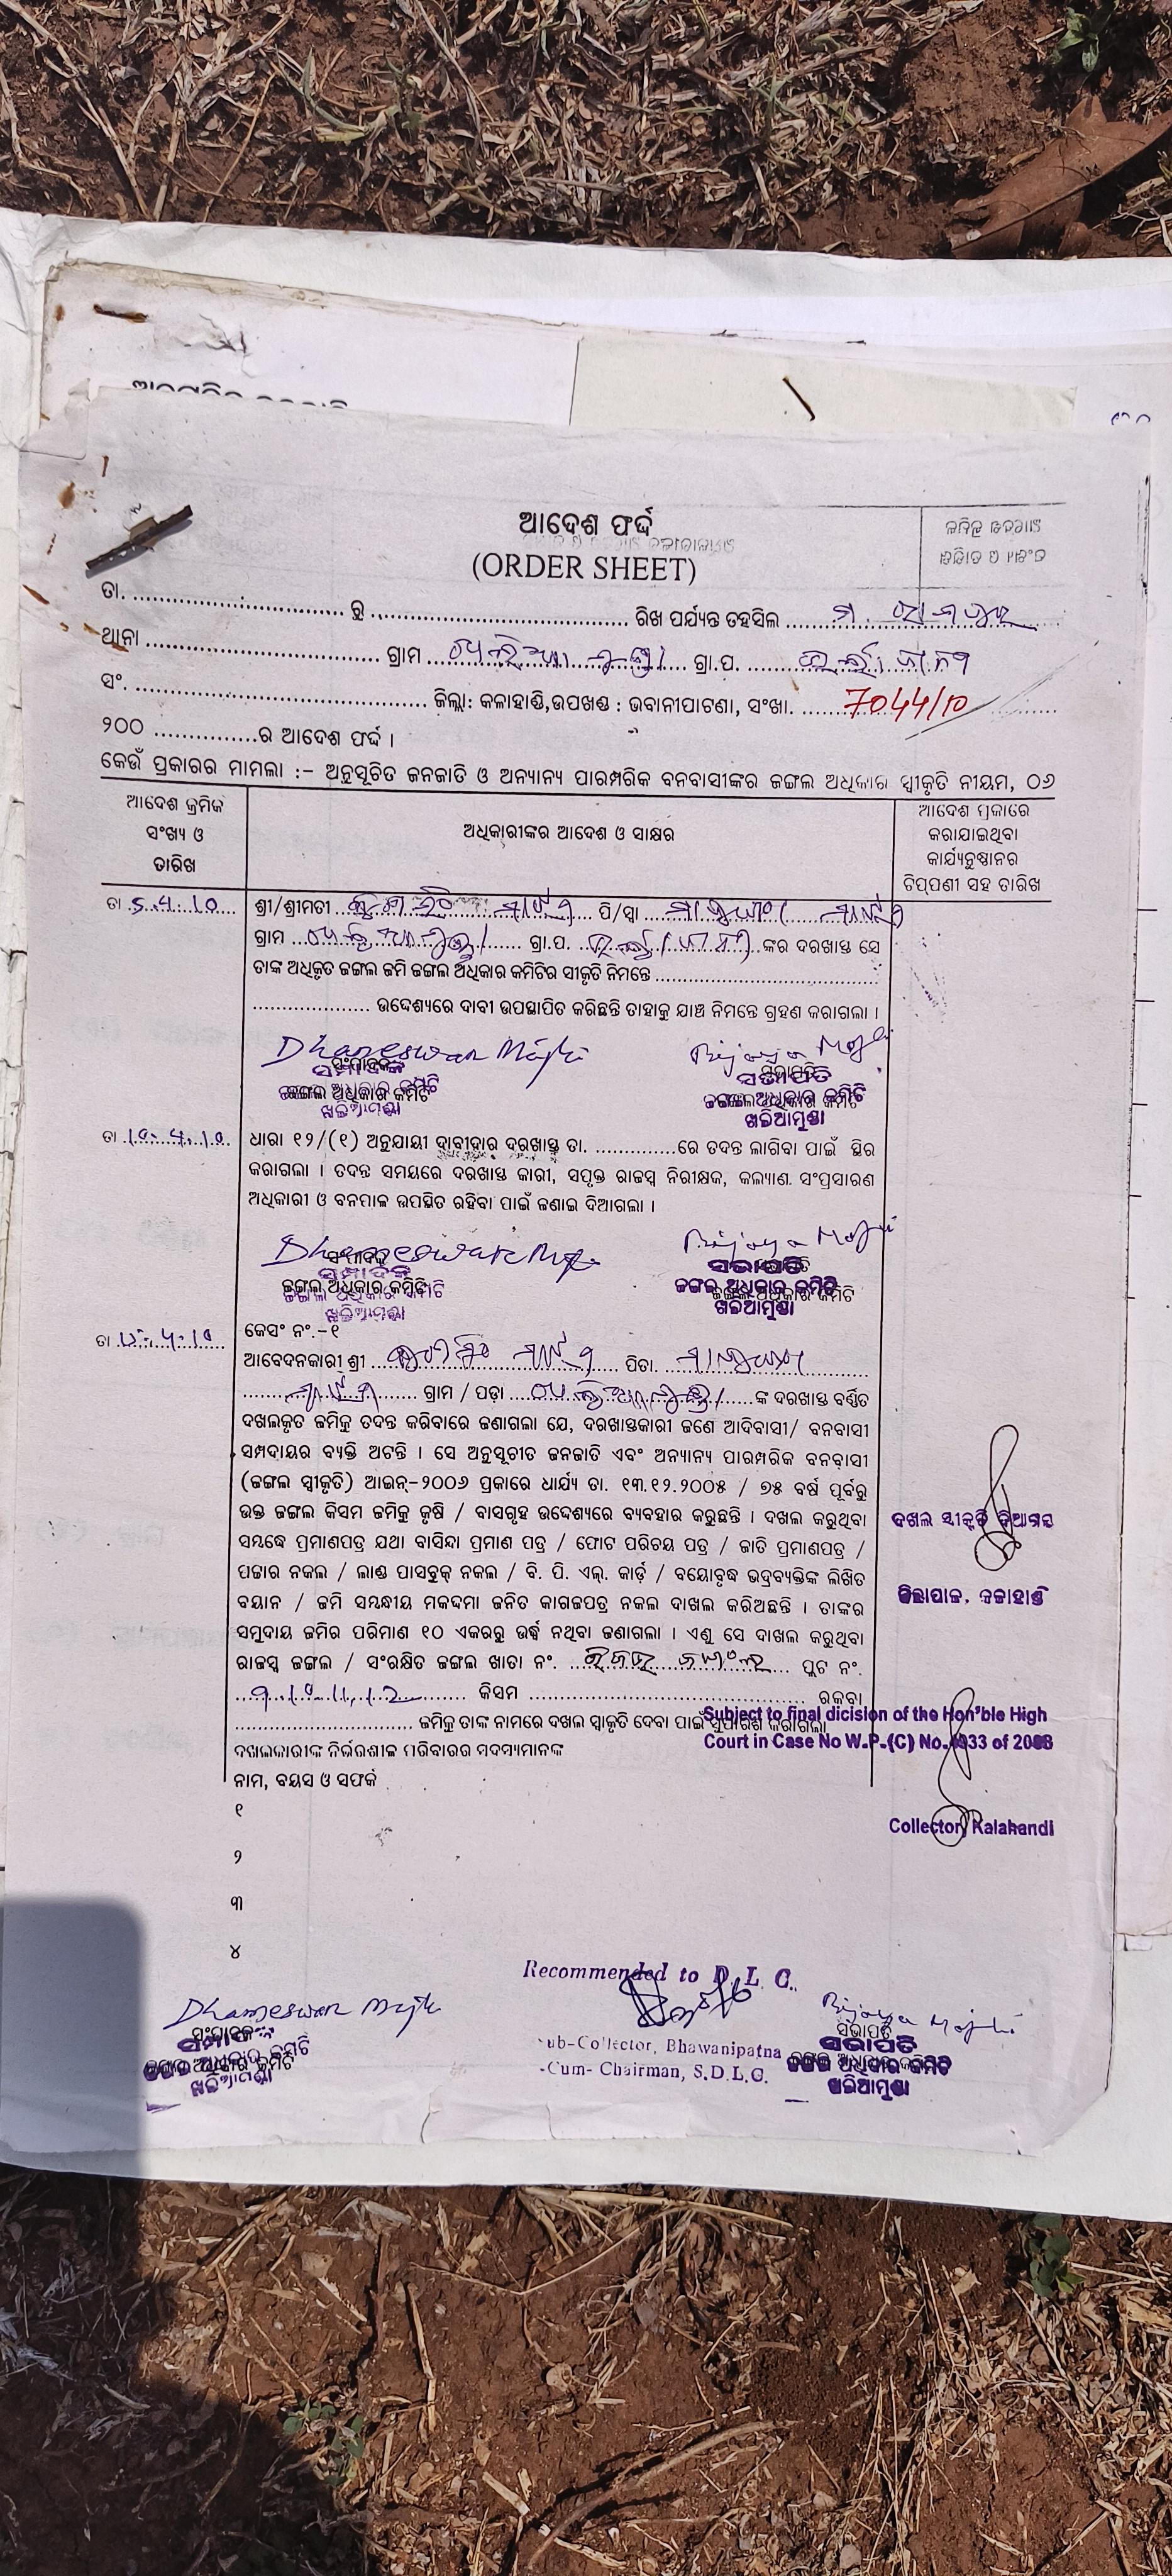 ଆଦେଶ ଫର୍ଦ୍ଦ
(ORDER SHEET)
ତା. ........................ ରୁ ........................ ରିଖ ପର୍ଯ୍ୟନ୍ତ ତହସିଲ
ଥାନା ........................ ଗ୍ରାମ ........................ ଗ୍ରା.ପ.
ସଂ. ........................ ଜିଲ୍ଲା: କଳାହାଣ୍ଡି, ଉପଖଣ୍ଡ : ଭବାନୀପାଟଣା, ସଂଖା. 7044/10
୨୦୦ ...............ର ଆଦେଶ ଫର୍ଦ୍ଦ ।
କେଉଁ ପ୍ରକାରର ମାମଲା :- ଅନୁସୂଚିତ ଜନଜାତି ଓ ଅନ୍ୟାନ୍ୟ ପାରମ୍ପରିକ ବନବାସୀଙ୍କର ଜଙ୍ଗଲ ଅଧିକାର ସ୍ୱୀକୃତି ନୀୟମ, ୦୬
ଆଦେଶ କ୍ରମିକ
ସଂଖ୍ୟ ଓ
ତାରିଖ
ଅଧିକାରୀଙ୍କର ଆଦେଶ ଓ ସାକ୍ଷର
ଆଦେଶ ପ୍ରକାରେ
କରାଯାଇଥିବା
କାର୍ଯ୍ୟନୁଷ୍ଠାନର
ଟିପ୍ପଣୀ ସହ ତାରିଖ
ତା 5.4.10
ଶ୍ରୀ/ଶ୍ରୀମତୀ ........................ ପି/ସ୍ୱା
ଗ୍ରାମ ........................ ଗ୍ରା.ପ. ........................ଙ୍କର ଦରଖାସ୍ତ ସେ
ତାଙ୍କ ଅଧିକୃତ ଜଙ୍ଗଲ ଜମି ଜଙ୍ଗଲ ଅଧିକାର କମିଟିର ସୀକୃତି ନିମନ୍ତେ ........................
........................ ଉଦ୍ଦେଶ୍ୟରେ ଦାବୀ ଉପସ୍ଥାପିତ କରିଛନ୍ତି ତାହାକୁ ଯାଞ୍ଚ ନିମନ୍ତେ ଗ୍ରହଣ କରାଗଲା ।
Dhaneswar Majhi
Bijaya Majhi
ସଂପାଦକ
ଜଙ୍ଗଲ ଅଧିକାର କମିଟି
ଖଲିଆମୁଣ୍ଡା
ସଭାପତି
ଜଙ୍ଗଲ ଅଧିକାର କମିଟି
ଖଲିଆମୁଣ୍ଡା
ତା 10.4.10
ଧାରା ୧୨/(୧) ଅନୁଯାୟୀ ଦାବୀଦାର ଦରଖାସ୍ତ ତା. ...............ରେ ତଦନ୍ତ ଲାଗିବା ପାଇଁ ସ୍ଥିର
କରାଗଲା । ତଦନ୍ତ ସମୟରେ ଦରଖାସ୍ତ କାରୀ, ସପୃକ୍ତ ରାଜସ୍ୱ ନିରୀକ୍ଷକ, କଲ୍ୟାଣ ସଂପ୍ରସାରଣ
ଅଧିକାରୀ ଓ ବନପାଳ ଉପସ୍ଥିତ ରହିବା ପାଇଁ ଜଣାଇ ଦିଆଗଲା ।
Dhaneswar Majhi
Bijaya Majhi
ସଂପାଦକ
ଜଙ୍ଗଲ ଅଧିକାର କମିଟି
ଖଲିଆମୁଣ୍ଡା
ସଭାପତି
ଜଙ୍ଗଲ ଅଧିକାର କମିଟି
ଖଲିଆମୁଣ୍ଡା
କେସଂ ନଂ.-୧
ଆବେଦନକାରୀ ଶ୍ରୀ ........................ ପିତା.
........................ ଗ୍ରାମ / ପଡ଼ା ........................ଙ୍କ ଦରଖାସ୍ତ ବର୍ଣ୍ଣିତ
ଦଖଲକୃତ ଜମିକୁ ତଦନ୍ତ କରିବାରେ ଜଣାଗଲା ଯେ, ଦରଖାସ୍ତକାରୀ ଜଣେ ଆଦିବାସୀ/ ବନବାସୀ
ସମ୍ପଦାୟର ବ୍ୟକ୍ତି ଅଟନ୍ତି । ସେ ଅନୁସୂଚୀତ ଜନଜାତି ଏବଂ ଅନ୍ୟାନ୍ୟ ପାରମ୍ପରିକ ବନବାସୀ
(ଜଙ୍ଗଲ ସ୍ୱୀକୃତି) ଆଇନ୍-୨୦୦୬ ପ୍ରକାରେ ଧାର୍ଯ୍ୟ ତା. ୧୩.୧୨.୨୦୦୫ / ୭୫ ବର୍ଷ ପୂର୍ବରୁ
ଉକ୍ତ ଜଙ୍ଗଲ କିସମ ଜମିକୁ କୃଷି / ବାସଗୃହ ଉଦ୍ଦେଶ୍ୟରେ ବ୍ୟବହାର କରୁଛନ୍ତି । ଦଖଲ କରୁଥିବା
ସମ୍ବଦ୍ଧେ ପ୍ରମାଣପତ୍ର ଯଥା ବାସିନ୍ଦା ପ୍ରମାଣ ପତ୍ର / ଫୋଟ ପରିଚୟ ପତ୍ର / ଜାତି ପ୍ରମାଣପତ୍ର /
ପଟ୍ଟାର ନକଲ / ଲାଣ୍ଡ ପାସବୁକ୍ ନକଲ / ବି. ପି. ଏଲ୍. କାର୍ଡ଼ / ବୟୋବୃଦ୍ଧ ଭଦ୍ରବ୍ୟକ୍ତିଙ୍କ ଲିଖିତ
ବୟାନ / ଜମି ସମ୍ବନ୍ଧୀୟ ମକଦ୍ଦମା ଜନିତ କାଗଜପତ୍ର ନକଲ ଦାଖଲ କରିଅଛନ୍ତି । ତାଙ୍କର
ସମୁଦାୟ ଜମିର ପରିମାଣ ୧୦ ଏକରରୁ ଉର୍ଦ୍ଧ୍ୱ ନଥିବା ଜଣାଗଲା । ଏଣୁ ସେ ଦାଖଲ କରୁଥିବା
ରାଜସ୍ୱ ଜଙ୍ଗଲ / ସଂରକ୍ଷିତ ଜଙ୍ଗଲ ଖାତା ନଂ. ........................ ପ୍ଲଟ ନଂ.
9.10.11,12 କିସମ ........................ ରକବା
........................ ଜମିକୁ ତାଙ୍କ ନାମରେ ଦଖଲ ସ୍ୱୀକୃତି ଦେବା ପାଇଁ ସୁପାରିଶ କରାଗଲା
ଦଖଲକାରୀଙ୍କ ନିର୍ଭରଶୀଳ ପରିବାରର ସଦସ୍ୟମାନଙ୍କ
ନାମ, ବୟସ ଓ ସଫର୍କ
ଦଖଲ ସ୍ୱୀକୃତି ଦିଆଗଲା
ଜିଲ୍ଲାପାଳ, କଳାହାଣ୍ଡି
Subject to final dicision of the Hon'ble High
Court in Case No W.P.(C) No. 4933 of 2008
Collector, Kalahandi
୧
୨
୩
୪
Recommended to D. L. C.
Dhaneswar Majhi
Bijaya Majhi
ସଂପାଦକ
ଜଙ୍ଗଲ ଅଧିକାର କମିଟି
ଖଲିଆମୁଣ୍ଡା
ub-Collector, Bhawanipatna
-Cum- Chairman, S.D.L.C.
ସଭାପତି
ଜଙ୍ଗଲ ଅଧିକାର କମିଟି
ଖଲିଆମୁଣ୍ଡା